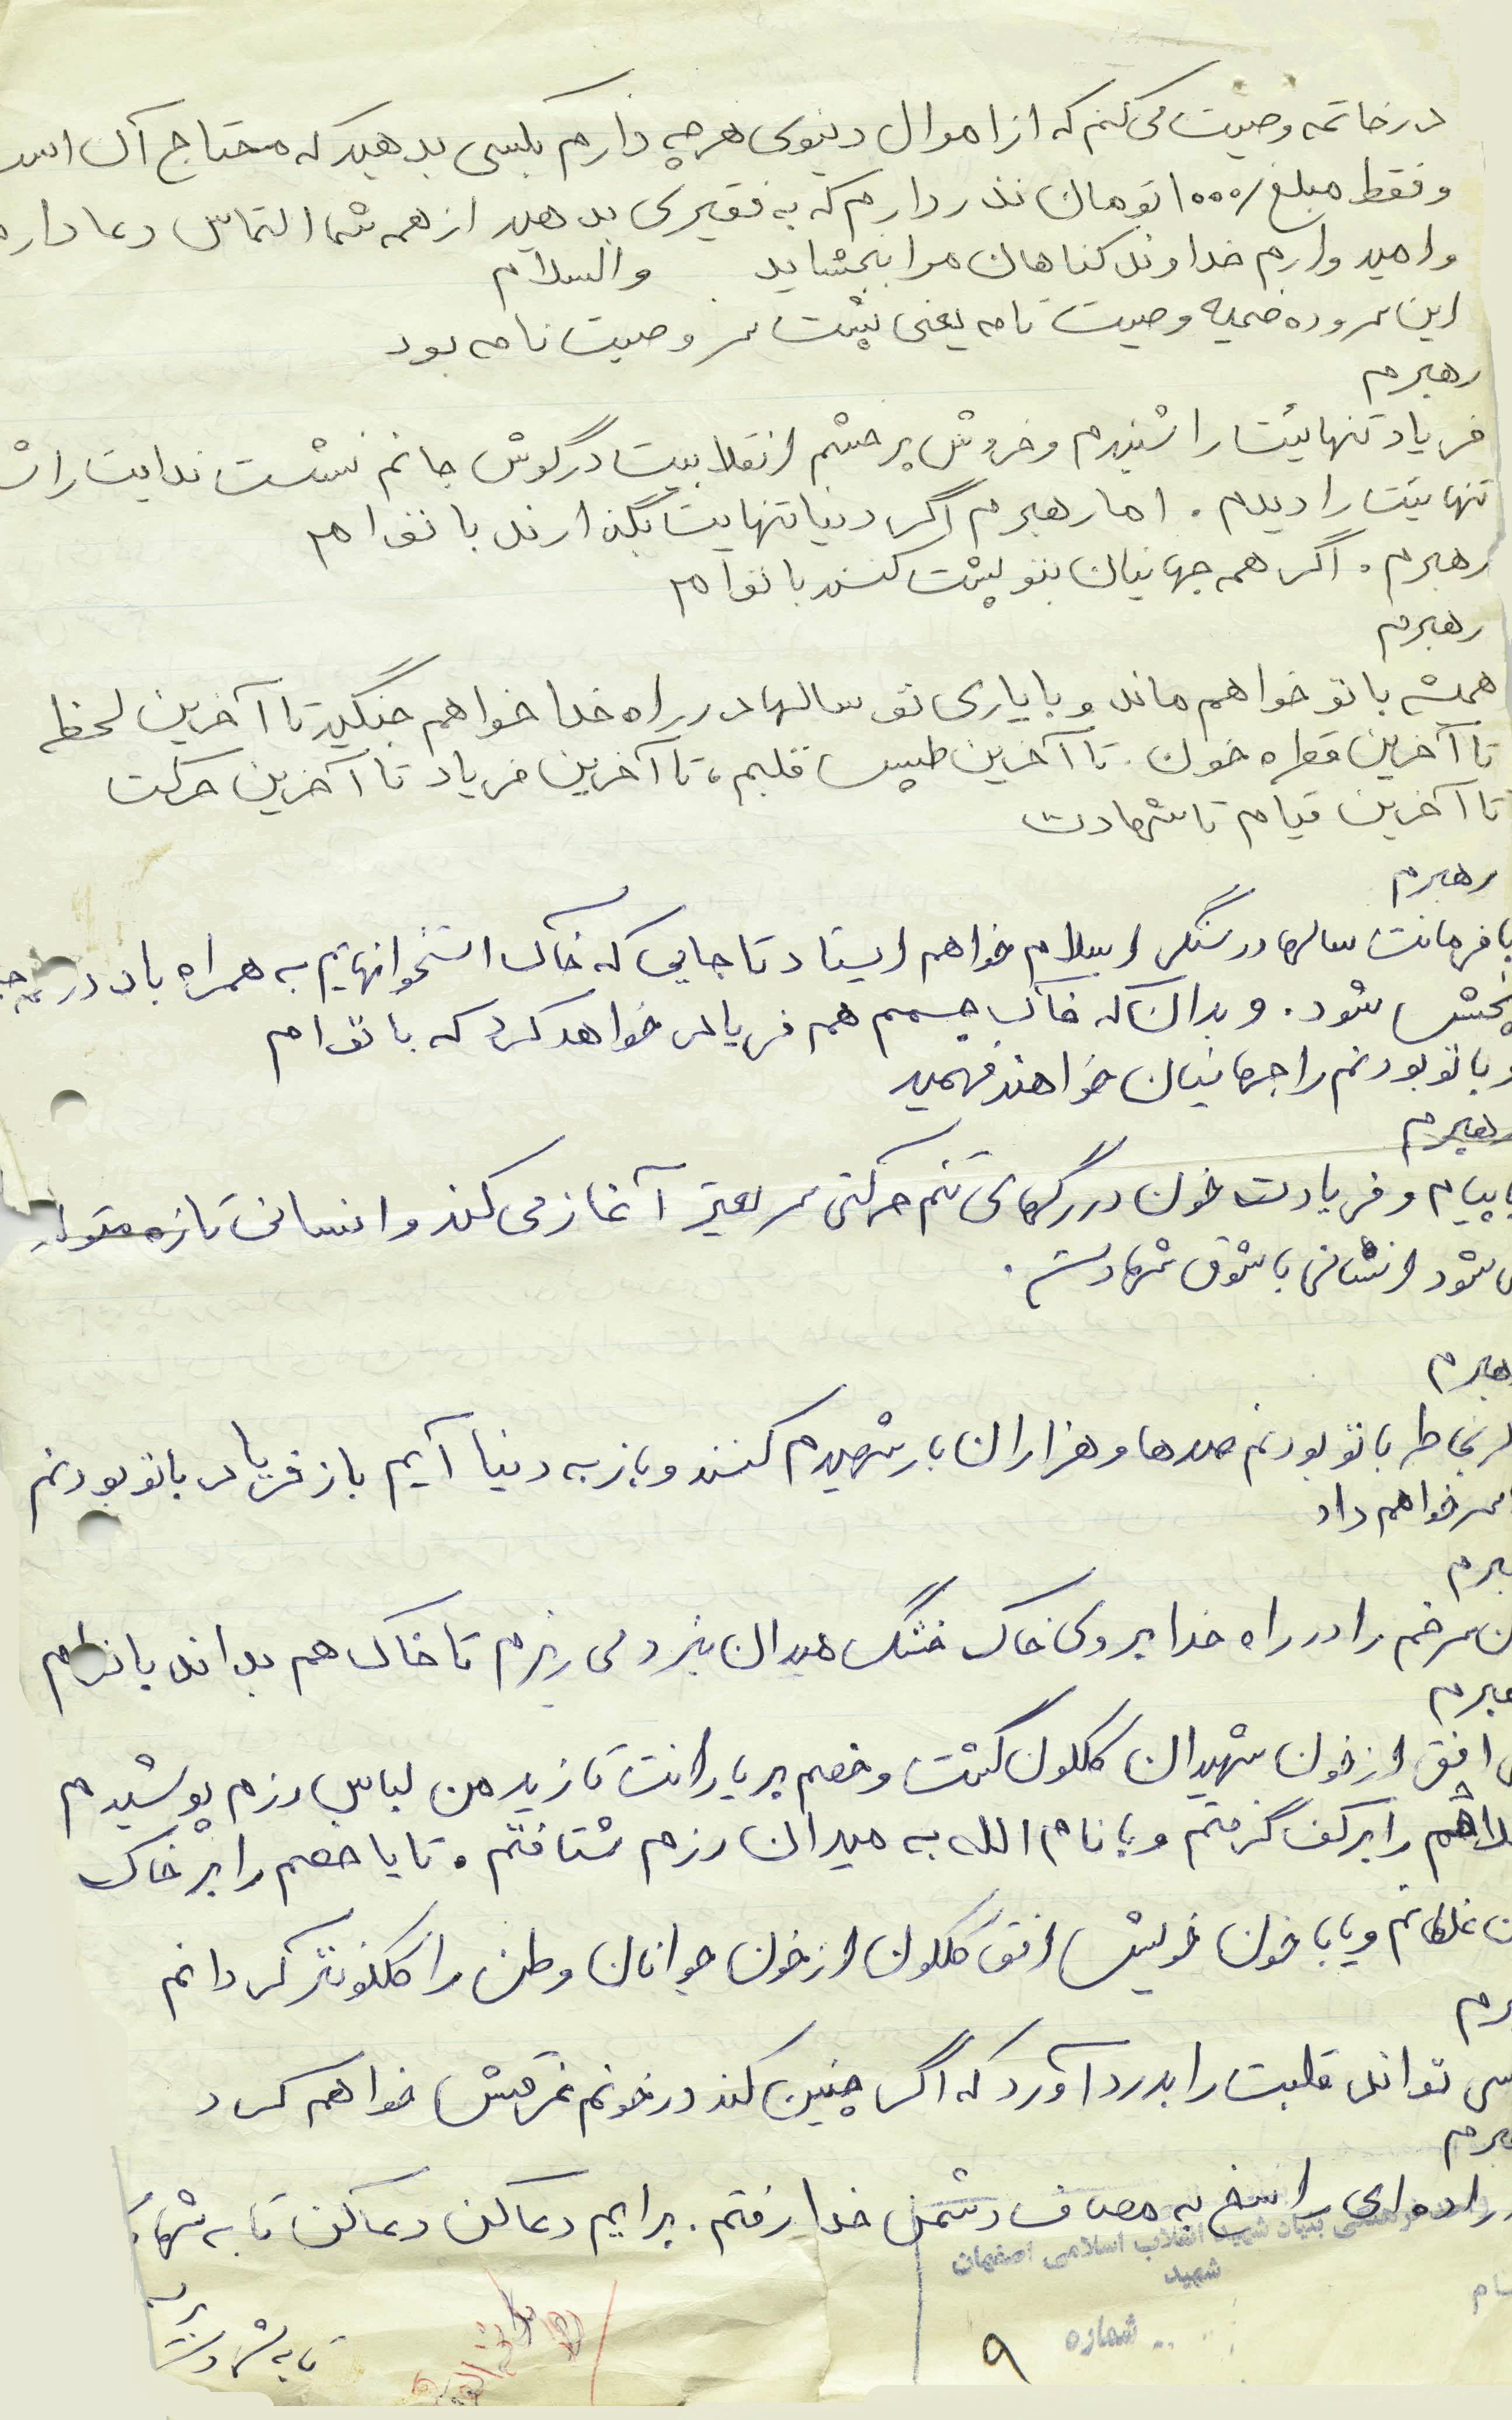 در خاتمه وصیت می کنم که از اموال دنیوی هرچه دارم بکسی بدهید که محتاج آن است
و فقط مبلغ ۱۰۰۰۰ تومان نذر دارم که به فقیری بدهید از همه شما التماس دعا دارم
و امیدوارم خداوند گناهان مرا ببخشاید والسلام
این سروده ضمیمه وصیت نامه یعنی پشت سر وصیت نامه بود
رهبرم
فریاد تنهائیت را شنیدم و خروش پر خشم انقلابیت در گوش جانم نشست ندایت را
تنهائیت را دیدم . اما رهبرم اگر دنیا تنهایت بگذارند با توام
رهبرم . اگر همه جهانیان بتو پشت کنند با توام
رهبرم
همیشه با تو خواهم ماند و با یاری تو سالها در راه خدا خواهم جنگید تا آخرین لحظه
تا آخرین قطره خون . تا آخرین طپش قلبم ، تا آخرین فریاد تا آخرین حرکت
تا آخرین قیام تا شهادت
رهبرم
با فرمانت سالها در سنگر اسلام خواهم ایستاد تا جایی که خاک استخوانهایم به همراه باد در
پخش شود . و بدان که خاک جسمم هم فریاد خواهد کرد که با توام
و با تو بودنم را جهانیان خواهند فهمید
رهبرم
با پیام و فریادت خون در رگهای تنم حرکتی سریعتر آغاز می کند و انسانی تازه متولد
می شود انسانی با شوق شهادت .
رهبرم
گر بخاطر با تو بودنم صدها و هزاران بار شهیدم کنند و باز به دنیا آیم باز فریاد با تو بودنم
سر خواهم داد
رهبرم
سرخم را در راه خدا بروی خاک خشک میدان نبرد می ریزم تا خاک هم بداند با توام
رهبرم
افق از خون شهیدان گلگون گشت و خصم بر یارانت تازید من لباس رزم پوشیدم
سلاحم را بر کف گرفتم و با نام الله به میدان رزم شتافتم . تا یا خصم را بر خاک
غلطانم و یا با خون خویش افق گلگون از خون جوانان وطن را گلگونتر گردانم
رهبرم
کسی تواند قلبت را بدرد آورد که اگر چنین کند در خونم غرقش خواهم کرد
رهبرم
اراده ای راسخ به مصاف دشمن خدا رفتم . برایم دعا کن دعا کن تا به شهادت
برسم
تا به شهادت
بنیاد شهید انقلاب اسلامی اصفهان
شهید
شماره ۹